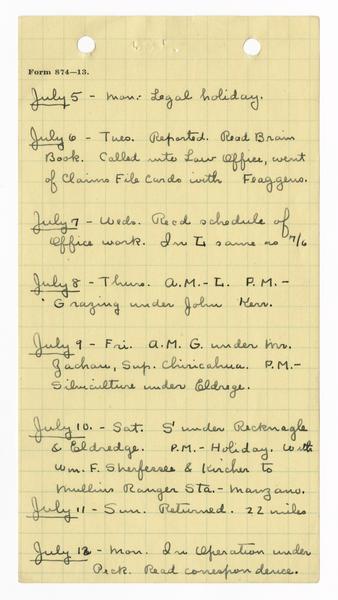 Form 874—13.
July 5 - Mon: Legal holiday.
July 6 - Tues. Reported. Read Brain
Book. Called into Law Office, went
of Claims File Cards with Feaggens.
July 7 - Weds. Read schedule of
Office work. In L same as 7/6
July 8 - Thurs. A.M. - L. P.M. -
Grazing under John Kerr.
July 9 - Fri. A.M. G. under Mr.
Zachau, Sup. Chiricahua. P.M. -
Silviculture under Eldrege.
July 10. - Sat. S' under Recknagle
& Eldredge. P.M. - Holiday. With
Wm. F. Sherfesee & Kircher to
Mullins Ranger Sta. - Manzano.
July 11 - Sun. Returned. 22 miles
July 12 - Mon. In Operation under
Peck. Read correspondence.